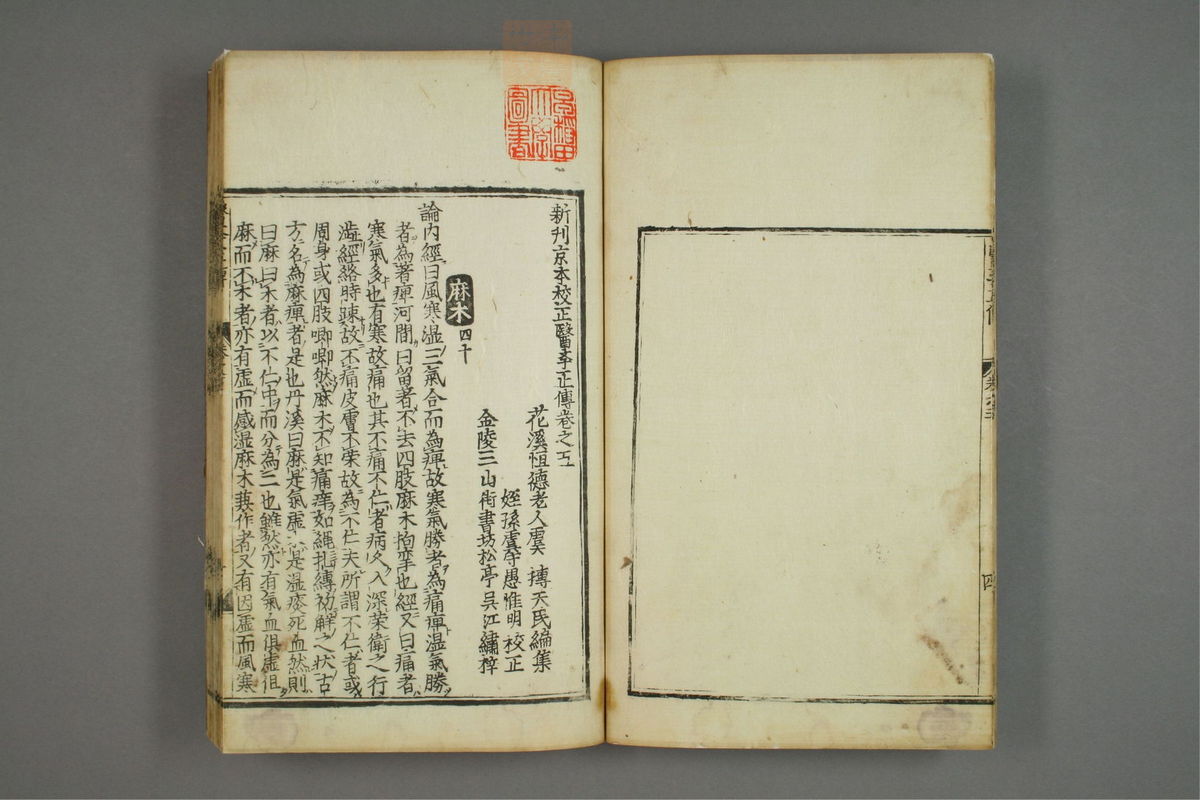 早稲田
大学
圖書
新刊京本校正醫學正傳卷之五
花溪恒德老人虞 摶天民編集
姪孫虞守愚惟明 校正
金陵三山街書坊松亭吳江繡梓
麻木 四十
論内經曰風寒湿三氣合而為痺故寒氣勝者為痛痺湿氣勝
者為著痺河間曰留著不去四肢麻木拘挛也經又曰痛者
寒氣多也有寒故痛也其不痛不仁者病久入深荣衛之行
濇經絡時踈故不痛皮膚不栄故為不仁夫所謂不仁者或
周身或四肢唧唧然麻木不知痛痒如縄扎縛初觧之状古
方名為麻痺者是也丹溪曰麻是氣虚木是湿痰死血然則
曰麻曰木者以不仁中而分為二也雖然亦有氣血俱虚但
麻而不木者亦有虚而感湿麻木兼作者又有因虚而風寒